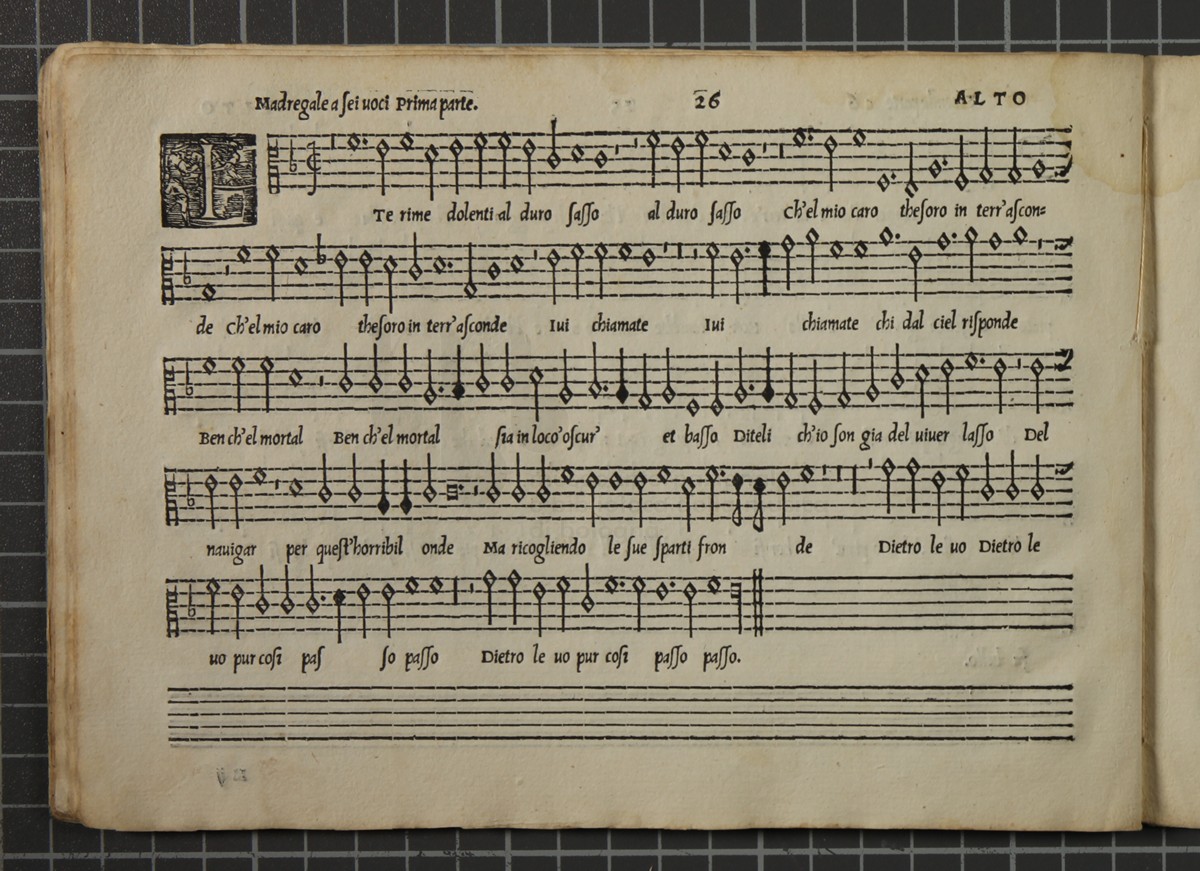 Madregale a ſei uoci Prima parte. 26 ALTO
ITe rime dolenti al duro ſaſſo al duro ſaſſo Ch'el mio caro theſoro in terr'aſcon=
de Ch'el mio caro theſoro in terr'aſconde Iui chiamate Iui chiamate chi dal ciel riſponde
Ben ch'el mortal Ben ch'el mortal ſia in loco'oſcur' et baſſo Diteli ch'io ſon gia del uiuer laſſo Del
nauigar per queſt'horribil onde Ma ricogliendo le ſue ſparti fron de Dietro le uo Dietro le
uo pur coſi paſ ſo paſſo Dietro le uo pur coſi paſſo paſſo.